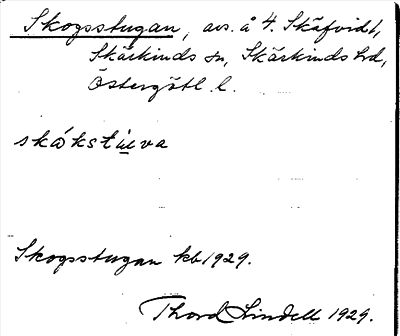 Skogsstugan, avs. å 4. Skäfvidt,
Skärkinds sn, Skärkinds hd,
Östergötl. l.
skákstu̲va
Skogsstugan kb 1929.
Thord Lindell 1929.